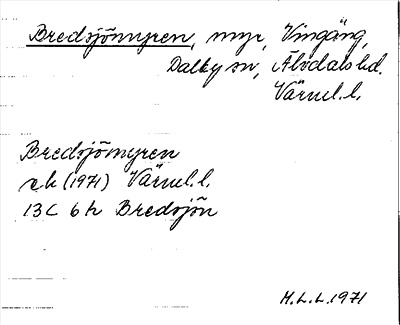 Bredsjömyren, myr, Vingäng,
Dalby sn, Älvdals hd.
Värml. l.
Bredsjömyren
ek (1971) Värml. l.
13C 6h Bredsjön
H.L.L. 1971